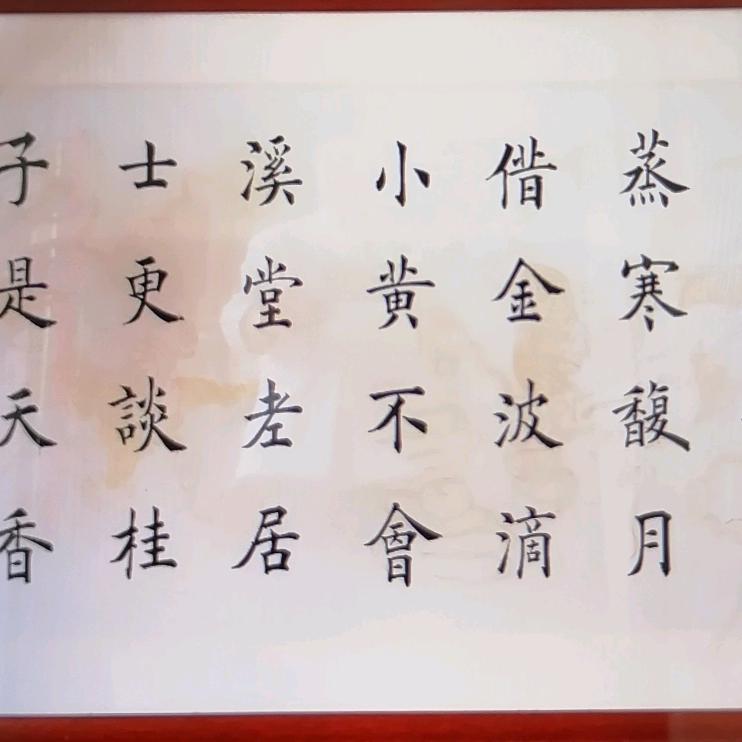 蒸寒馥月
借金波滴
小黄不會
溪堂老居
士更談桂
子是天香